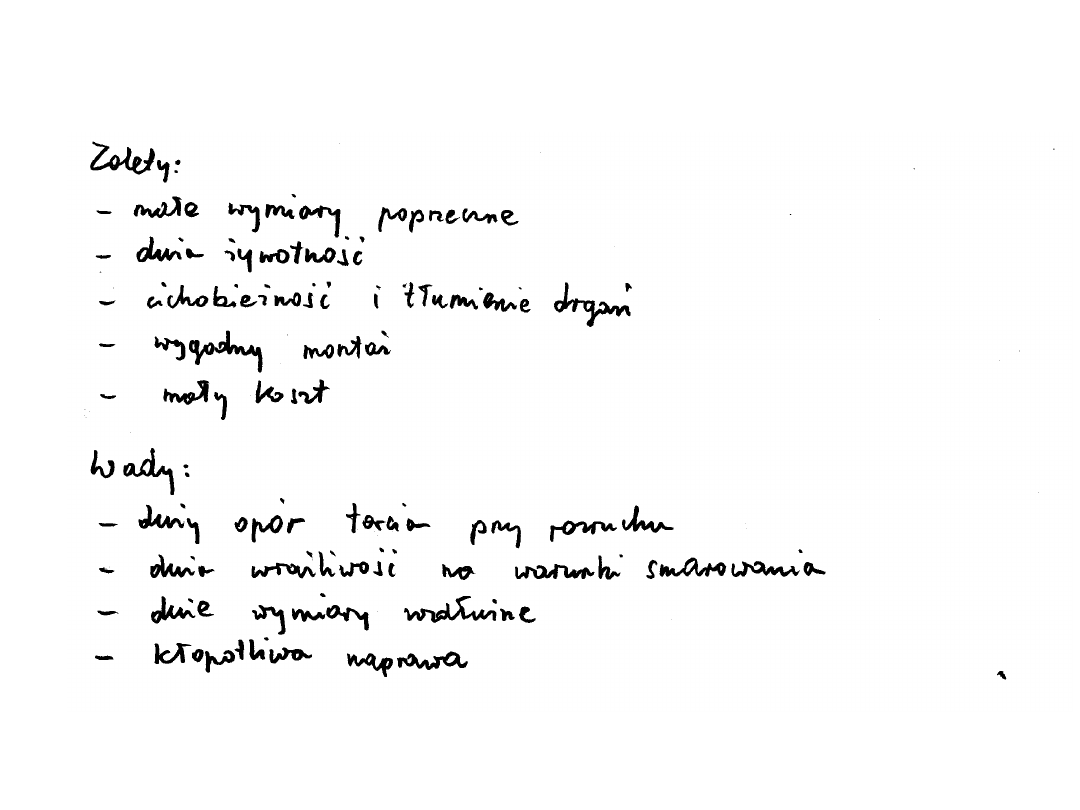 Zalety:
- małe wymiary poprzeczne
- duża żywotność
- cichobieżność i tłumienie drgań
- wygodny montaż
- mały koszt
Wady:
- duży opór tarcia przy rozruchu
- duża wrażliwość na warunki smarowania
- duże wymiary wzdłużne
- kłopotliwa naprawa